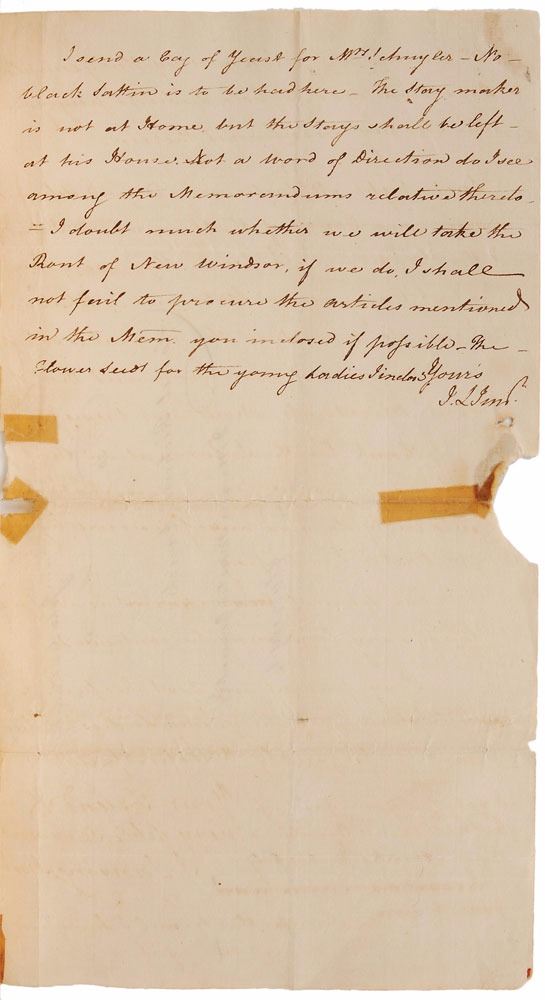 I send a Cag of Yeast for Mrs. Schuyler – No –
black Sattin is to be had here – The Stay maker
is not at Home but the Stays shall be left –
at his House. Not a word of Direction do I see
among the Memorandums relative thereto –
= I doubt much whether we will take the
Rout of New Windsor, if we do, I shall
not fail to procure the articles mentioned
in the Mem. you inclosed if possible – The –
Flower Seeds for the young Ladies I inclose Yours